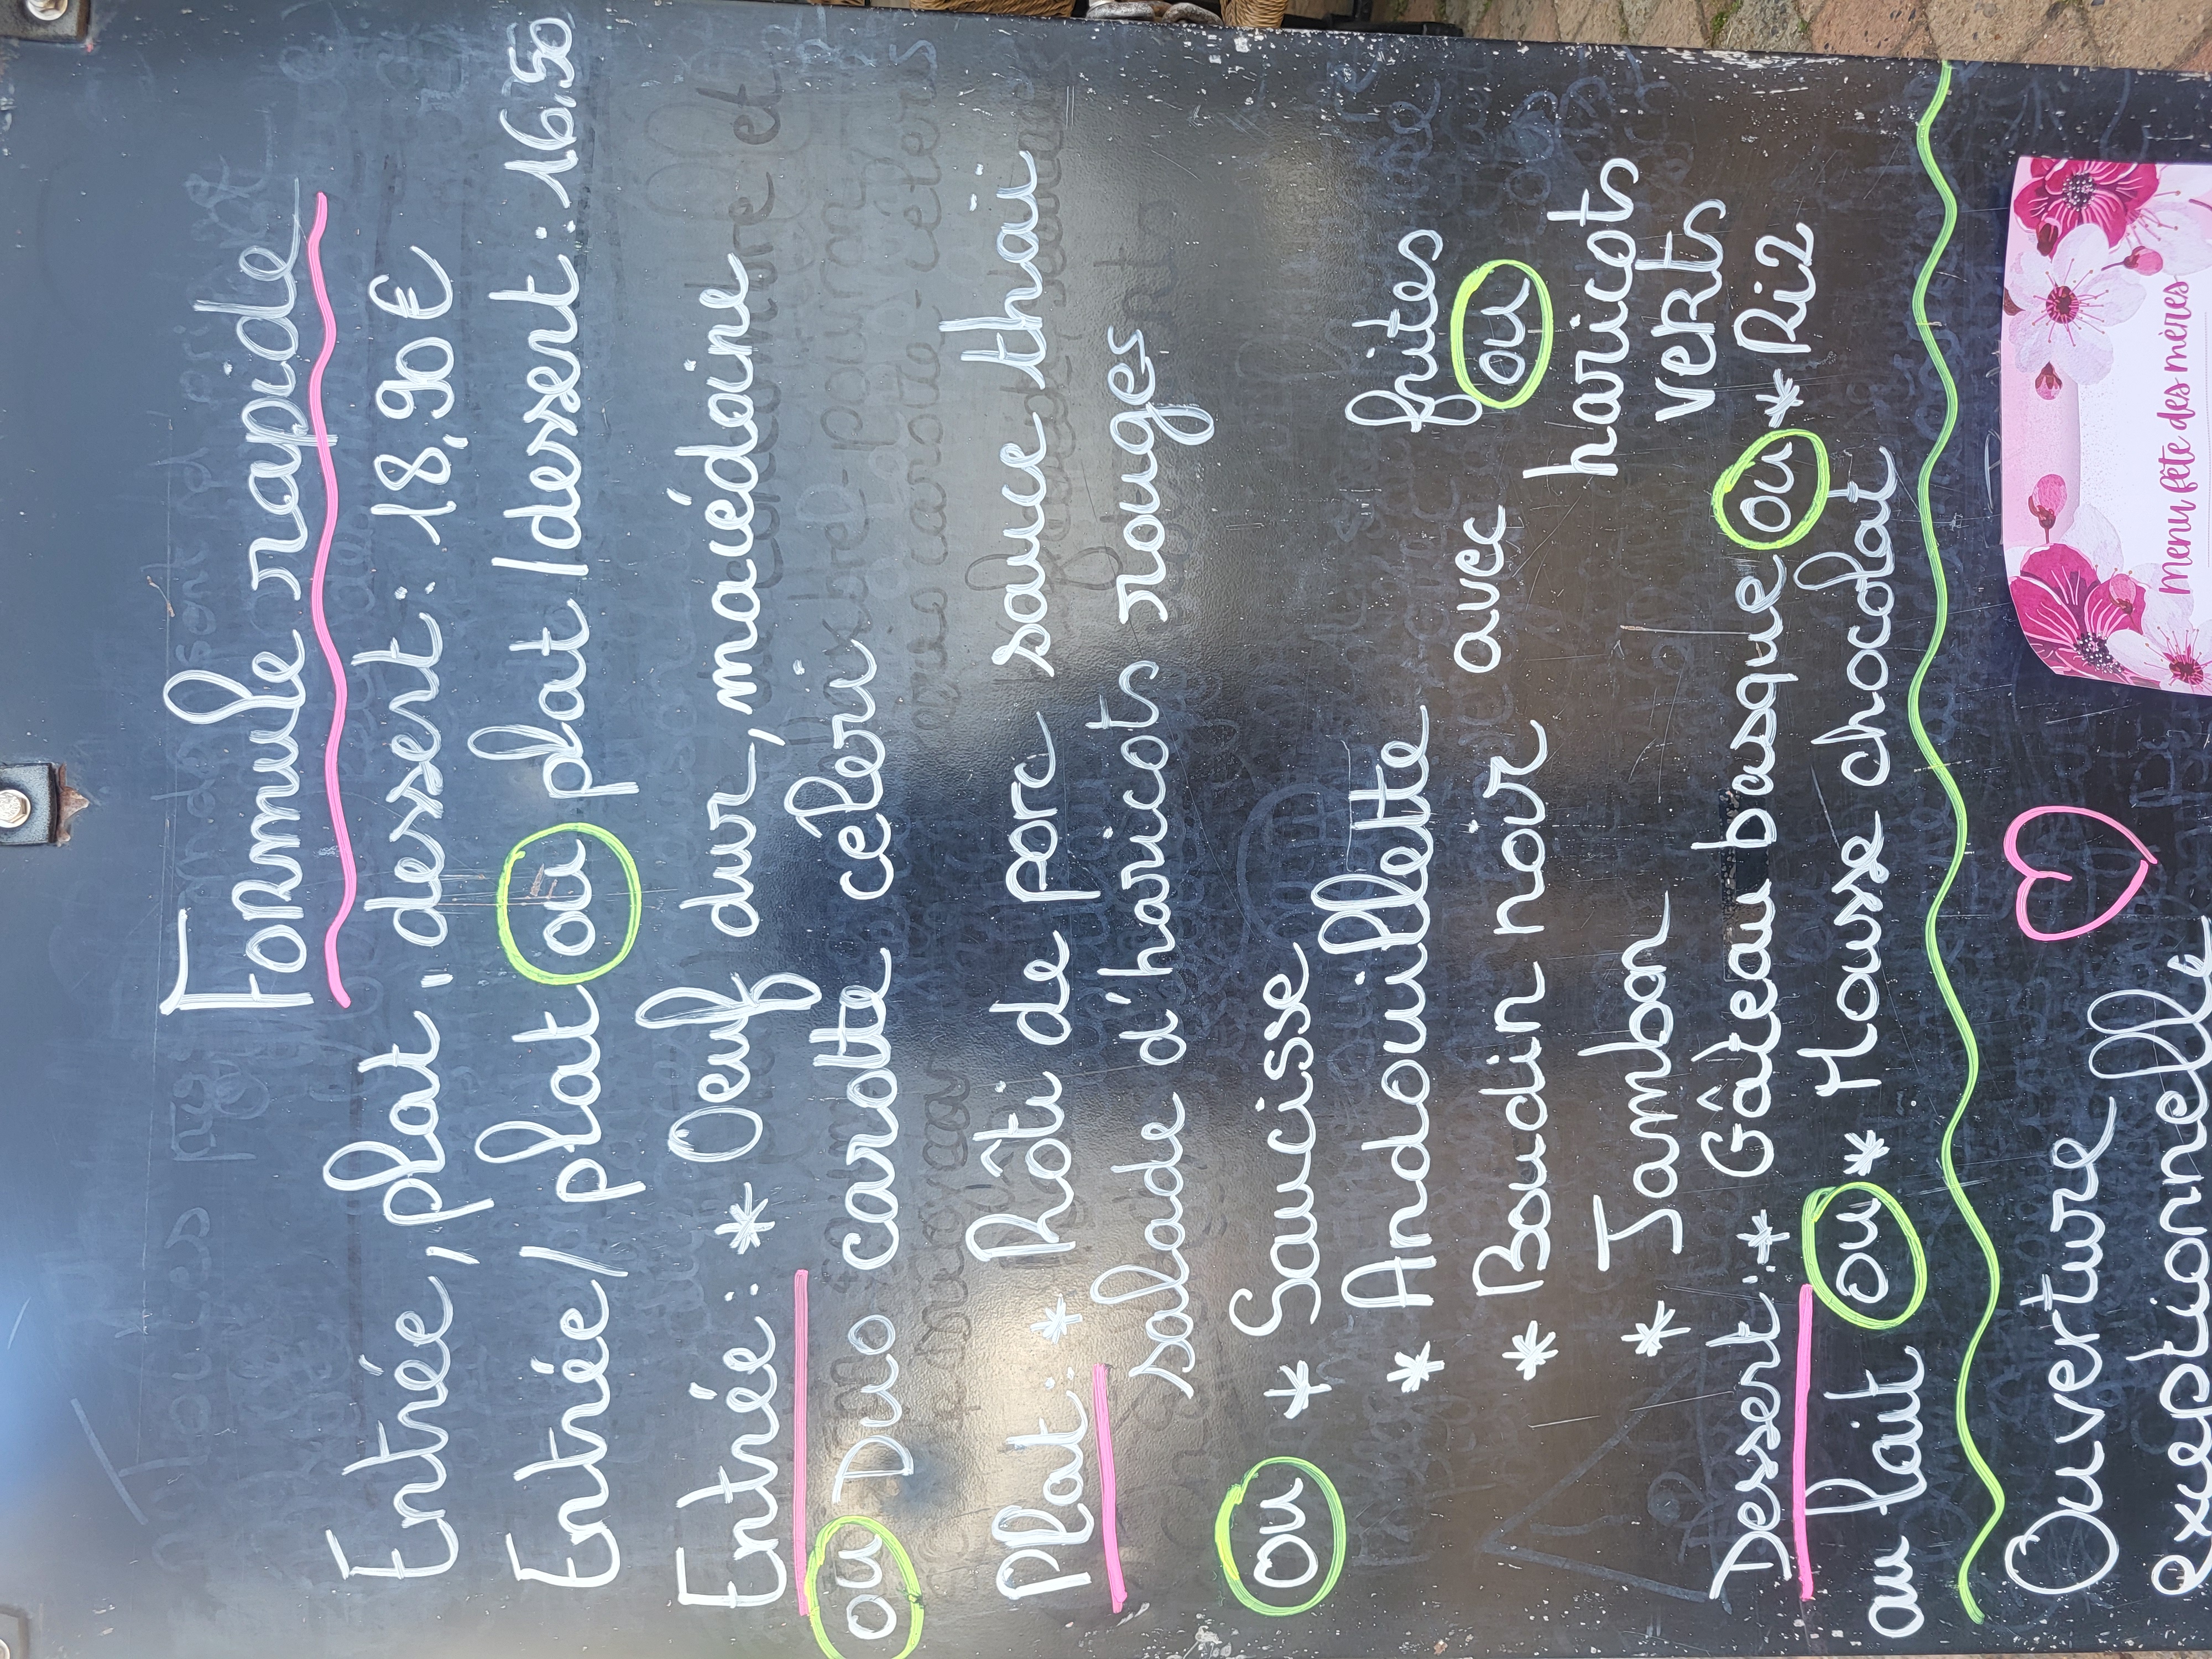 Formule rapide
Entrée, plat, dessert: 18,90 €
Entrée/plat ou plat/dessert: 16,50
Entrée: * Oeuf dur, macédoine
ou Duo carotte céleri
Plat: * Rôti de porc sauce thaï
salade d'haricots rouges
ou * Saucisse
* Andouillette
* Boudin noir
* Jambon
avec
frites
ou
haricots
verts
Dessert: * Gâteau basque ou * Riz
au lait ou * Mousse chocolat
Ouverture
exceptionnelle
Menu fête des mères